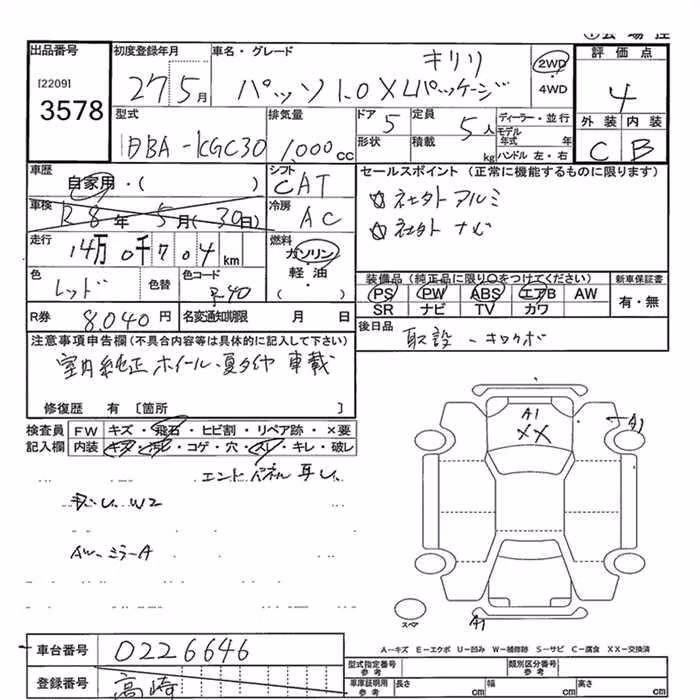 出品番号
[2209]
3578
初度登録年月
27年5月
車名・グレード
キリリ
パッソ 1.0 X Lパッケージ
2WD
4WD
評価点
4
外装 内装
C B
型式
DBA-KGC30
排気量
1,000cc
ドア
5
形状
定員
5人
積載
kg
ディーラー・並行
モデル年式 年
ハンドル 左・右
車歴
自家用・( )
車検
28年5月(30日)
走行
14万0千704km
色
レッド
色替
色コード
R40
R券
8,040円
名変通知期限 月 日
シフト
CAT
冷房
AC
燃料
ガソリン
軽油
( )
セールスポイント (正常に機能するものに限ります)
☆社外アルミ
☆社外ナビ
装備品(純正品に限り○をつけてください)
PS PW ABS エアB AW
SR ナビ TV カワ
新車保証書
有・無
後日品
取設
注意事項申告欄(不具合内容等は具体的に記入して下さい)
室内純正ホイール・夏タイヤ 車載
修復歴 有 [箇所 ]
検査員記入欄
FW キズ・飛石・ヒビ割・リペア跡・×要
内装 キズ・汚レ・コゲ・穴・スレ・キレ・破レ
W2
AW-ミラーA
A1
XX
A1
スペア
A1
A-キズ E-エクボ U-凹み W-補修跡 S-サビ C-腐食 XX-交換済
車台番号
0226646
登録番号
高崎
型式指定番号
参考
類別区分番号
参考
車庫証明用
参考
長さ cm 幅 cm 高さ cm